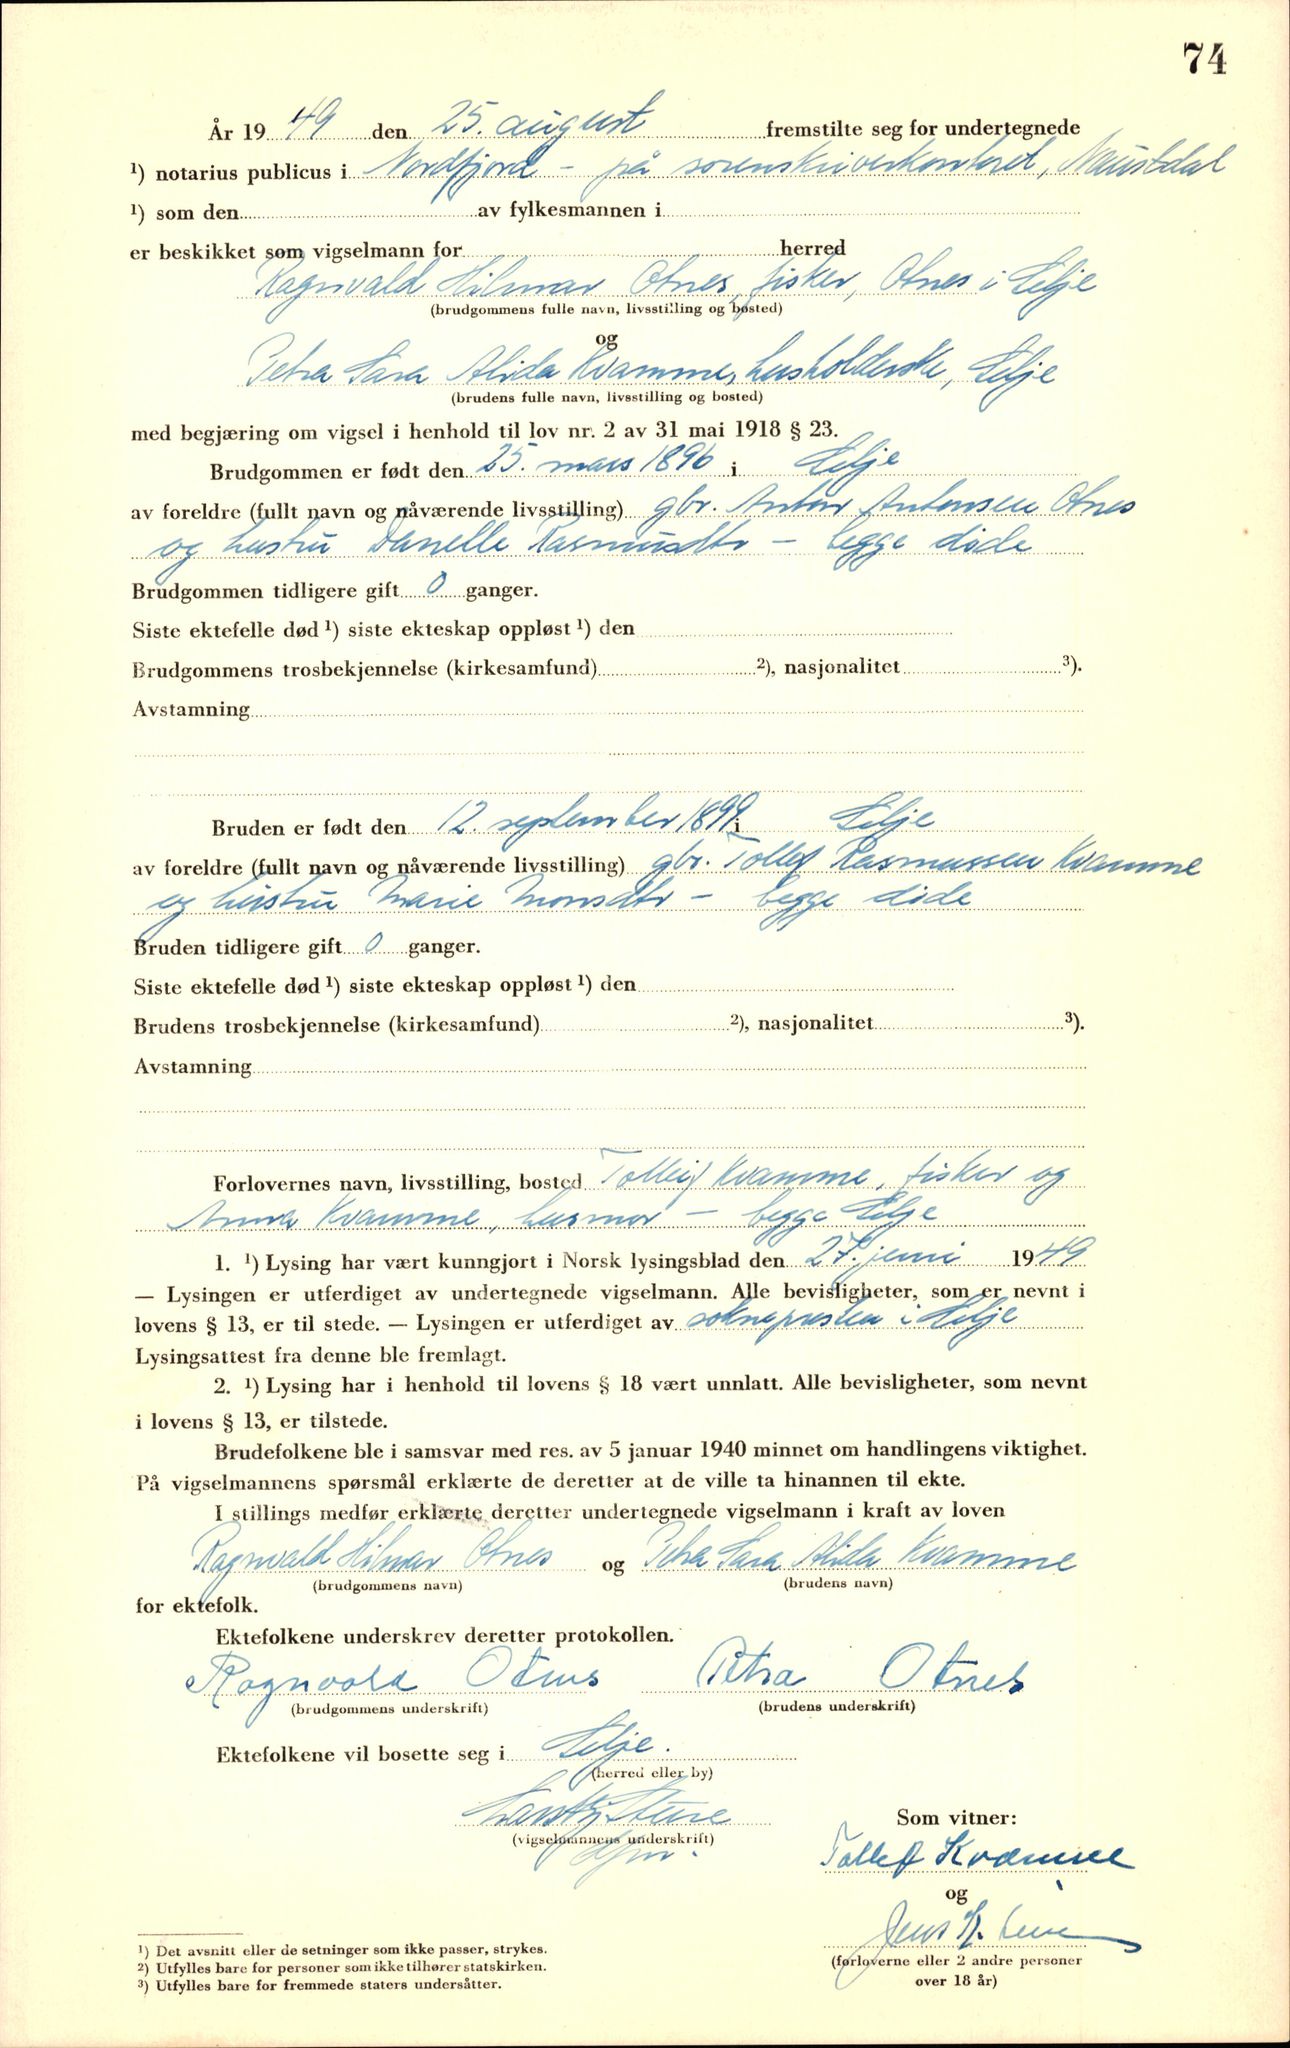 74
År 1949 den 25. august fremstilte seg for undertegnede
¹) notarius publicus i Nordfjord – på sorenskriverkontoret, Naustdal
¹) som den av fylkesmannen i
er beskikket som vigselmann for herred
Ragnvald Hilmar Otnes, fisker, Otnes i Selje
(brudgommens fulle navn, livsstilling og bosted)
og
Petra Sara Alida Kvamme, husholderske, Selje
(brudens fulle navn, livsstilling og bosted)
med begjæring om vigsel i henhold til lov nr. 2 av 31 mai 1918 § 23.
Brudgommen er født den 25. mars 1896 i Selje
av foreldre (fullt navn og nåværende livsstilling) gbr. Anton Antonsen Otnes
og hustru Danelle Rasmusdtr – begge døde
Brudgommen tidligere gift 0 ganger.
Siste ektefelle død ¹) siste ekteskap oppløst ¹) den
Brudgommens trosbekjennelse (kirkesamfund) ²), nasjonalitet ³).
Avstamning
Bruden er født den 12. september 1899 i Selje
av foreldre (fullt navn og nåværende livsstilling) gbr. Tollef Rasmussen Kvamme
og hustru Marie Monsdtr – begge døde
Bruden tidligere gift 0 ganger.
Siste ektefelle død ¹) siste ekteskap oppløst ¹) den
Brudens trosbekjennelse (kirkesamfund) ²), nasjonalitet ³).
Avstamning
Forlovernes navn, livsstilling, bosted Tolleif Kvamme, fisker og
Anna Kvamme, husmor – begge Selje
1. ¹) Lysing har vært kunngjort i Norsk lysingsblad den 27. juni 1949
— Lysingen er utferdiget av undertegnede vigselmann. Alle bevisligheter, som er nevnt i
lovens § 13, er til stede. — Lysingen er utferdiget av soknepresten i Selje
Lysingsattest fra denne ble fremlagt.
2. ¹) Lysing har i henhold til lovens § 18 vært unnlatt. Alle bevisligheter, som nevnt
i lovens § 13, er tilstede.
Brudefolkene ble i samsvar med res. av 5 januar 1940 minnet om handlingens viktighet.
På vigselmannens spørsmål erklærte de deretter at de ville ta hinannen til ekte.
I stillings medfør erklærte deretter undertegnede vigselmann i kraft av loven
Ragnvald Hilmar Otnes og Petra Sara Alida Kvamme
(brudgommens navn) (brudens navn)
for ektefolk.
Ektefolkene underskrev deretter protokollen.
Ragnvald Otnes Petra Otnes
(brudgommens underskrift) (brudens underskrift)
Ektefolkene vil bosette seg i Selje.
(herred eller by)
(vigselmannens underskrift)
Som vitner:
Tollef Kvamme
og
Jens
(forloverne eller 2 andre personer
over 18 år)
¹) Det avsnitt eller de setninger som ikke passer, strykes.
²) Utfylles bare for personer som ikke tilhører statskirken.
³) Utfylles bare for fremmede staters undersåtter.